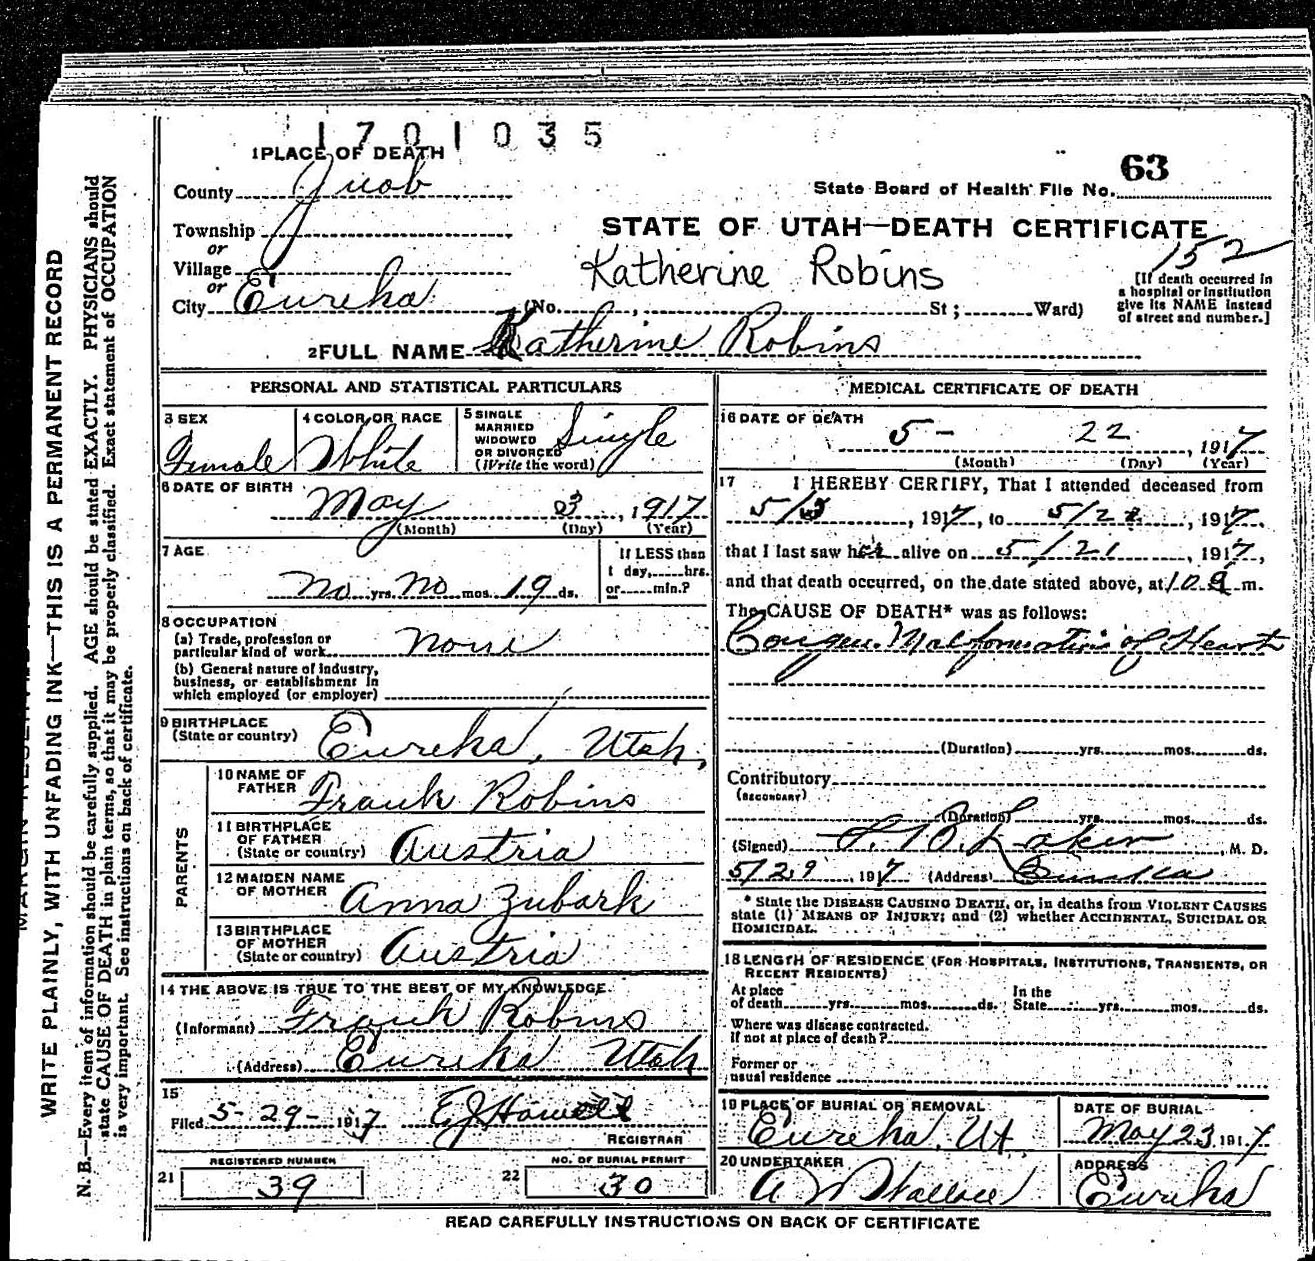 1701035
1 PLACE OF DEATH
County Juab
State Board of Health File No. 63
Township
or
Village
or
City Eureka
STATE OF UTAH—DEATH CERTIFICATE
152
Katherine Robins
(No. , St; Ward)
[If death occurred in
a hospital or institution
give its NAME instead
of street and number.]
2 FULL NAME Katherine Robins
PERSONAL AND STATISTICAL PARTICULARS
3 SEX
Female
4 COLOR OR RACE
White
5 SINGLE
MARRIED
WIDOWED
OR DIVORCED
(Write the word)
Single
6 DATE OF BIRTH
May 3, 1917
(Month) (Day) (Year)
7 AGE
No yrs. No mos. 19 ds.
If LESS than
1 day,.....hrs.
or.....min.?
8 OCCUPATION
(a) Trade, profession or
particular kind of work none
(b) General nature of industry,
business, or establishment in
which employed (or employer)
9 BIRTHPLACE
(State or country) Eureka, Utah,
PARENTS
10 NAME OF
FATHER Frank Robins
11 BIRTHPLACE
OF FATHER
(State or country) Austria
12 MAIDEN NAME
OF MOTHER Anna Zubark
13 BIRTHPLACE
OF MOTHER
(State or country) Austria
14 THE ABOVE IS TRUE TO THE BEST OF MY KNOWLEDGE.
(Informant) Frank Robins
(Address) Eureka Utah
15
Filed 5-29-1917 EJ Howell
REGISTRAR
REGISTERED NUMBER
21 39
NO. OF BURIAL PERMIT
22 30
MEDICAL CERTIFICATE OF DEATH
16 DATE OF DEATH
5- 22, 1917
(Month) (Day) (Year)
17 I HEREBY CERTIFY, That I attended deceased from
5/3, 1917, to 5/22, 1917,
that I last saw her alive on 5/21, 1917,
and that death occurred, on the date stated above, at 10 a m.
The CAUSE OF DEATH* was as follows:
Congen. Malformation of Heart
(Duration) yrs. mos. ds.
Contributory
(SECONDARY)
(Duration) yrs. mos. ds.
(Signed) Laker, M. D.
5/29, 1917 (Address) Eureka
* State the DISEASE CAUSING DEATH, or, in deaths from VIOLENT CAUSES
state (1) MEANS OF INJURY; and (2) whether ACCIDENTAL, SUICIDAL OR
HOMICIDAL.
18 LENGTH OF RESIDENCE (FOR HOSPITALS, INSTITUTIONS, TRANSIENTS, OR
RECENT RESIDENTS)
At place
of death yrs. mos. ds.
In the
State yrs. mos. ds.
Where was disease contracted.
If not at place of death?
Former or
usual residence
19 PLACE OF BURIAL OR REMOVAL
Eureka, Ut.
DATE OF BURIAL
May 23, 1917
20 UNDERTAKER
A M Wallace
ADDRESS
Eureka
READ CAREFULLY INSTRUCTIONS ON BACK OF CERTIFICATE
WRITE PLAINLY, WITH UNFADING INK—THIS IS A PERMANENT RECORD
N. B.—Every item of information should be carefully supplied. AGE should be stated EXACTLY. PHYSICIANS should
state CAUSE OF DEATH in plain terms, so that it may be properly classified. Exact statement of OCCUPATION
is very important. See instructions on back of certificate.